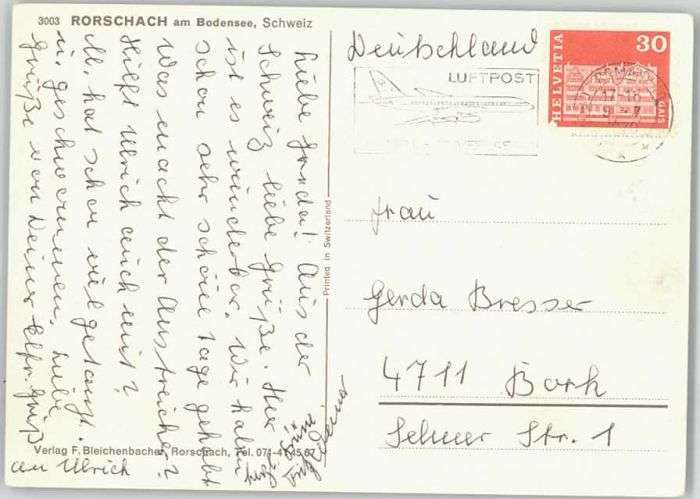 3003 RORSCHACH am Bodensee, Schweiz
Liebe Gerda! Aus der
Schweiz liebe Grüße. Hier
ist es wunderbar. Wir haben
schon sehr schöne Tage gehabt
Was macht der Anstreicher?
Hilft Ulrich auch mit?
M. hat schon viel getanzt
u. geschwommen. Liebe
Grüße von Deiner Elfr. Gruß
an Ulrich
herzl. Grüße
Verlag F. Bleichenbacher, Rorschach, Tel. 071-41 45 67
Printed in Switzerland
Deutschland
LUFTPOST
HELVETIA
30
GAIS
17-18
Frau
Gerda Bresser
4711 Bork
Selmer Str. 1